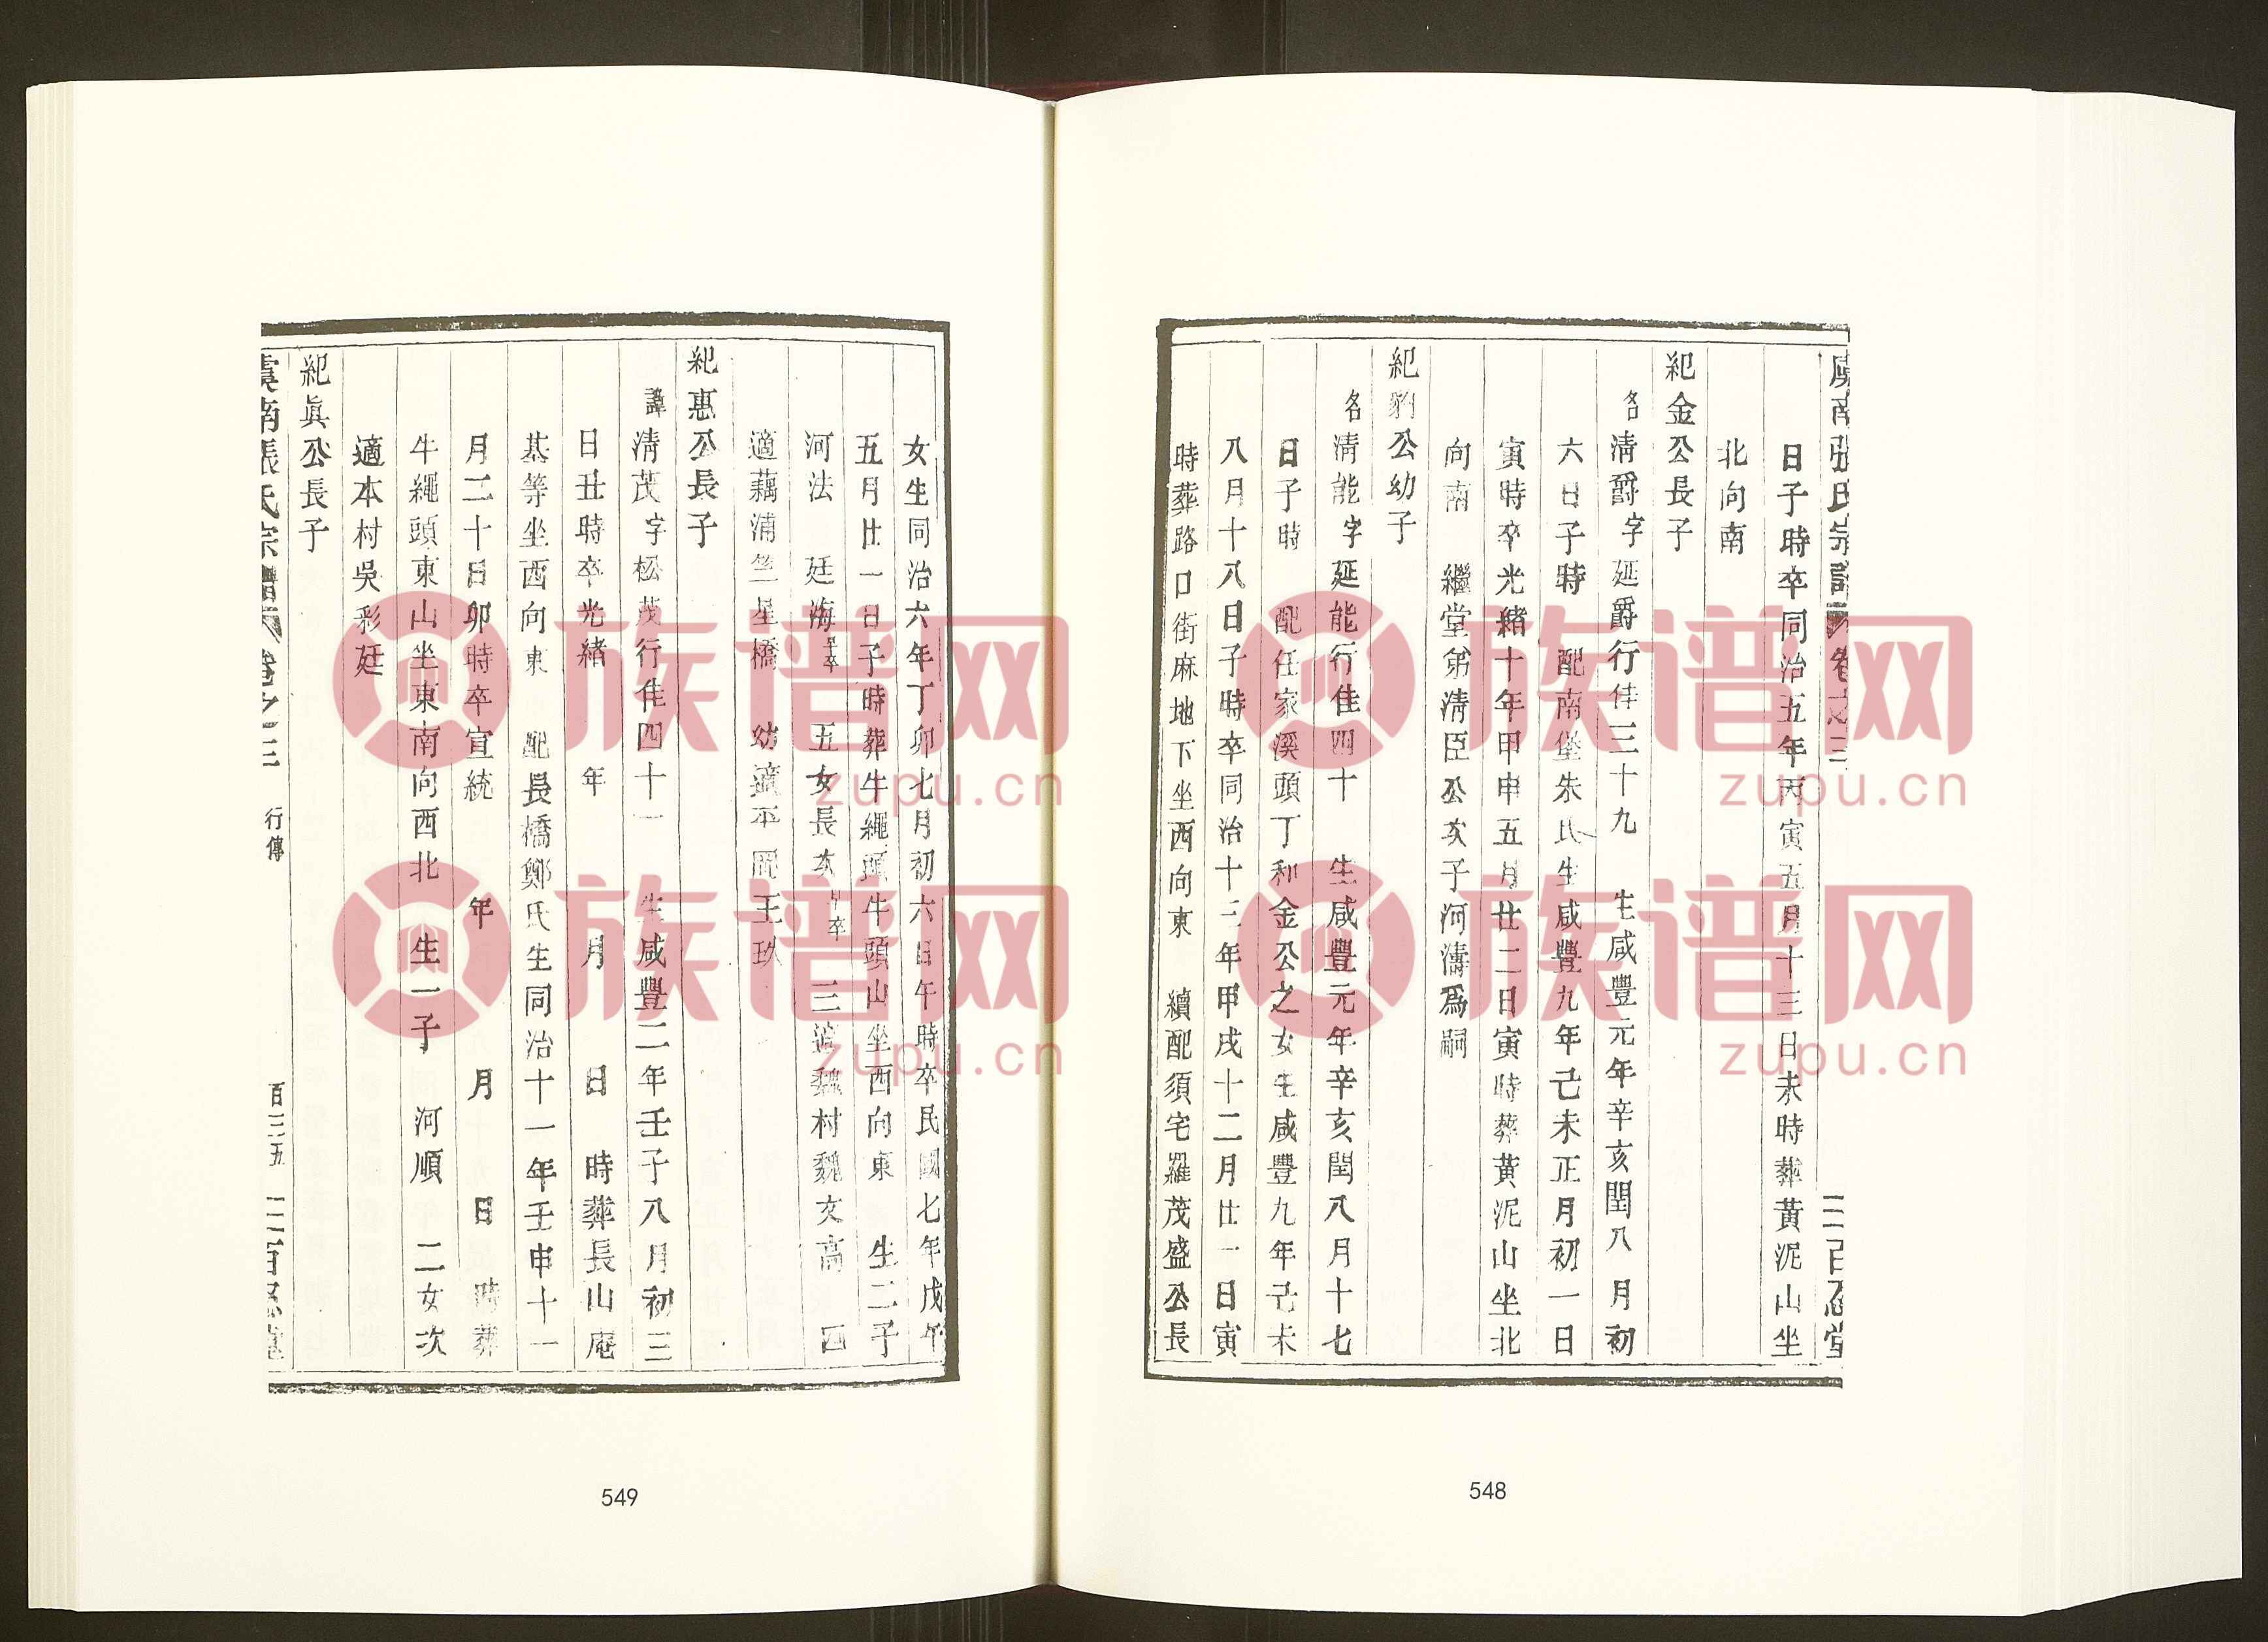 虞南張氏宗譜 卷之三 百忍堂
日子時卒同治五年丙寅五月十三日未時葬黃泥山坐
北向南
紀金公長子
名清爵字延爵行佳三十九 生咸豐元年辛亥閏八月初
六日子時 配南堡朱氏生咸豐九年己未正月初一日
寅時卒光緒十年甲申五月廿二日寅時葬黃泥山坐北
向南 繼堂弟清臣公次子河濤爲嗣
紀豹公幼子
名清能字延能行佳四十 生咸豐元年辛亥閏八月十七
日子時 配任家溪頭丁和金公之女生咸豐九年己未
八月十八日子時卒同治十三年甲戌十二月廿一日寅
時葬路口街麻地下坐西向東 續配須宅羅茂盛公長
548
女生同治六年丁卯七月初六日午時卒民國七年戊午
五月廿一日子時葬牛繩頭牛頭山坐西向東 生二子
河法 廷海早卒 五女長次早卒 三適魏村魏文高 四
適藕浦竺星橋 幼適平岡王玖
紀惠公長子
諱清茂字松茂行佳四十一 生咸豐二年壬子八月初三
日丑時卒光緒 年 月 日 時葬長山庵
基等坐西向東 配長橋鄭氏生同治十一年壬申十一
月二十日卯時卒宣統 年 月 日 時葬
牛繩頭東山坐東南向西北 生一子 河順 二女次
適本村吳彩廷
紀眞公長子
虞南張氏宗譜 卷之三 行傳 百三五 百忍堂
549
族谱网
zupu.cn
族谱网
zupu.cn
族谱网
zupu.cn
族谱网
zupu.cn